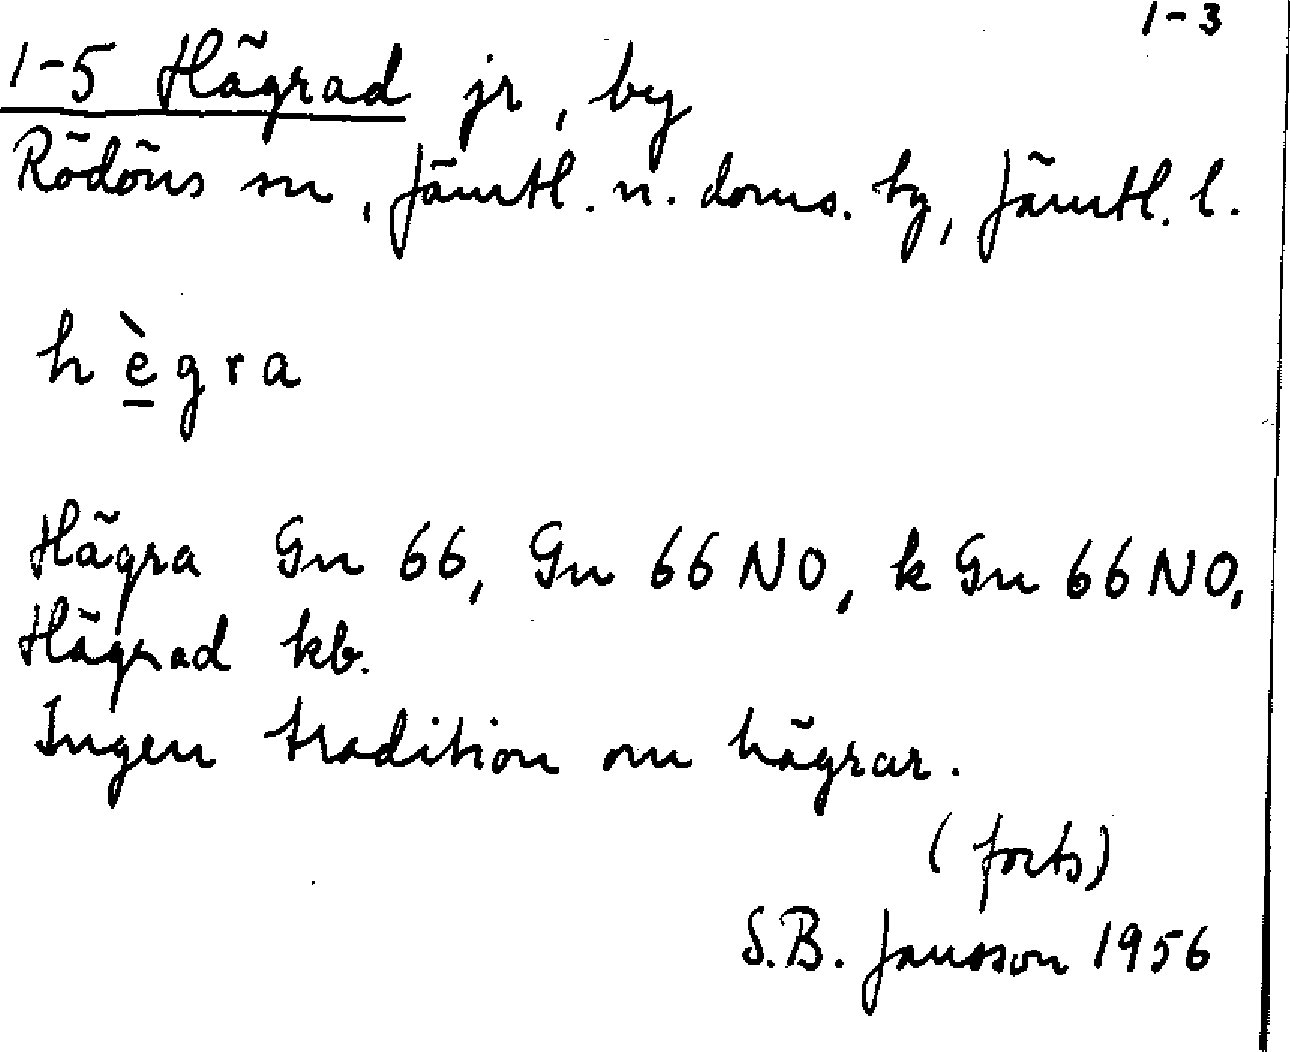 1-3
1-5 Hägrad jr, by
Rödöns sn, Jämtl. n. doms. by, Jämtl. l.
hègra
Hägra Gn 66, Gn 66 NO, k Gn 66 NO,
Hägrad kb.
Ingen tradition om hägrar.
(forts)
S.B. Jansson 1956